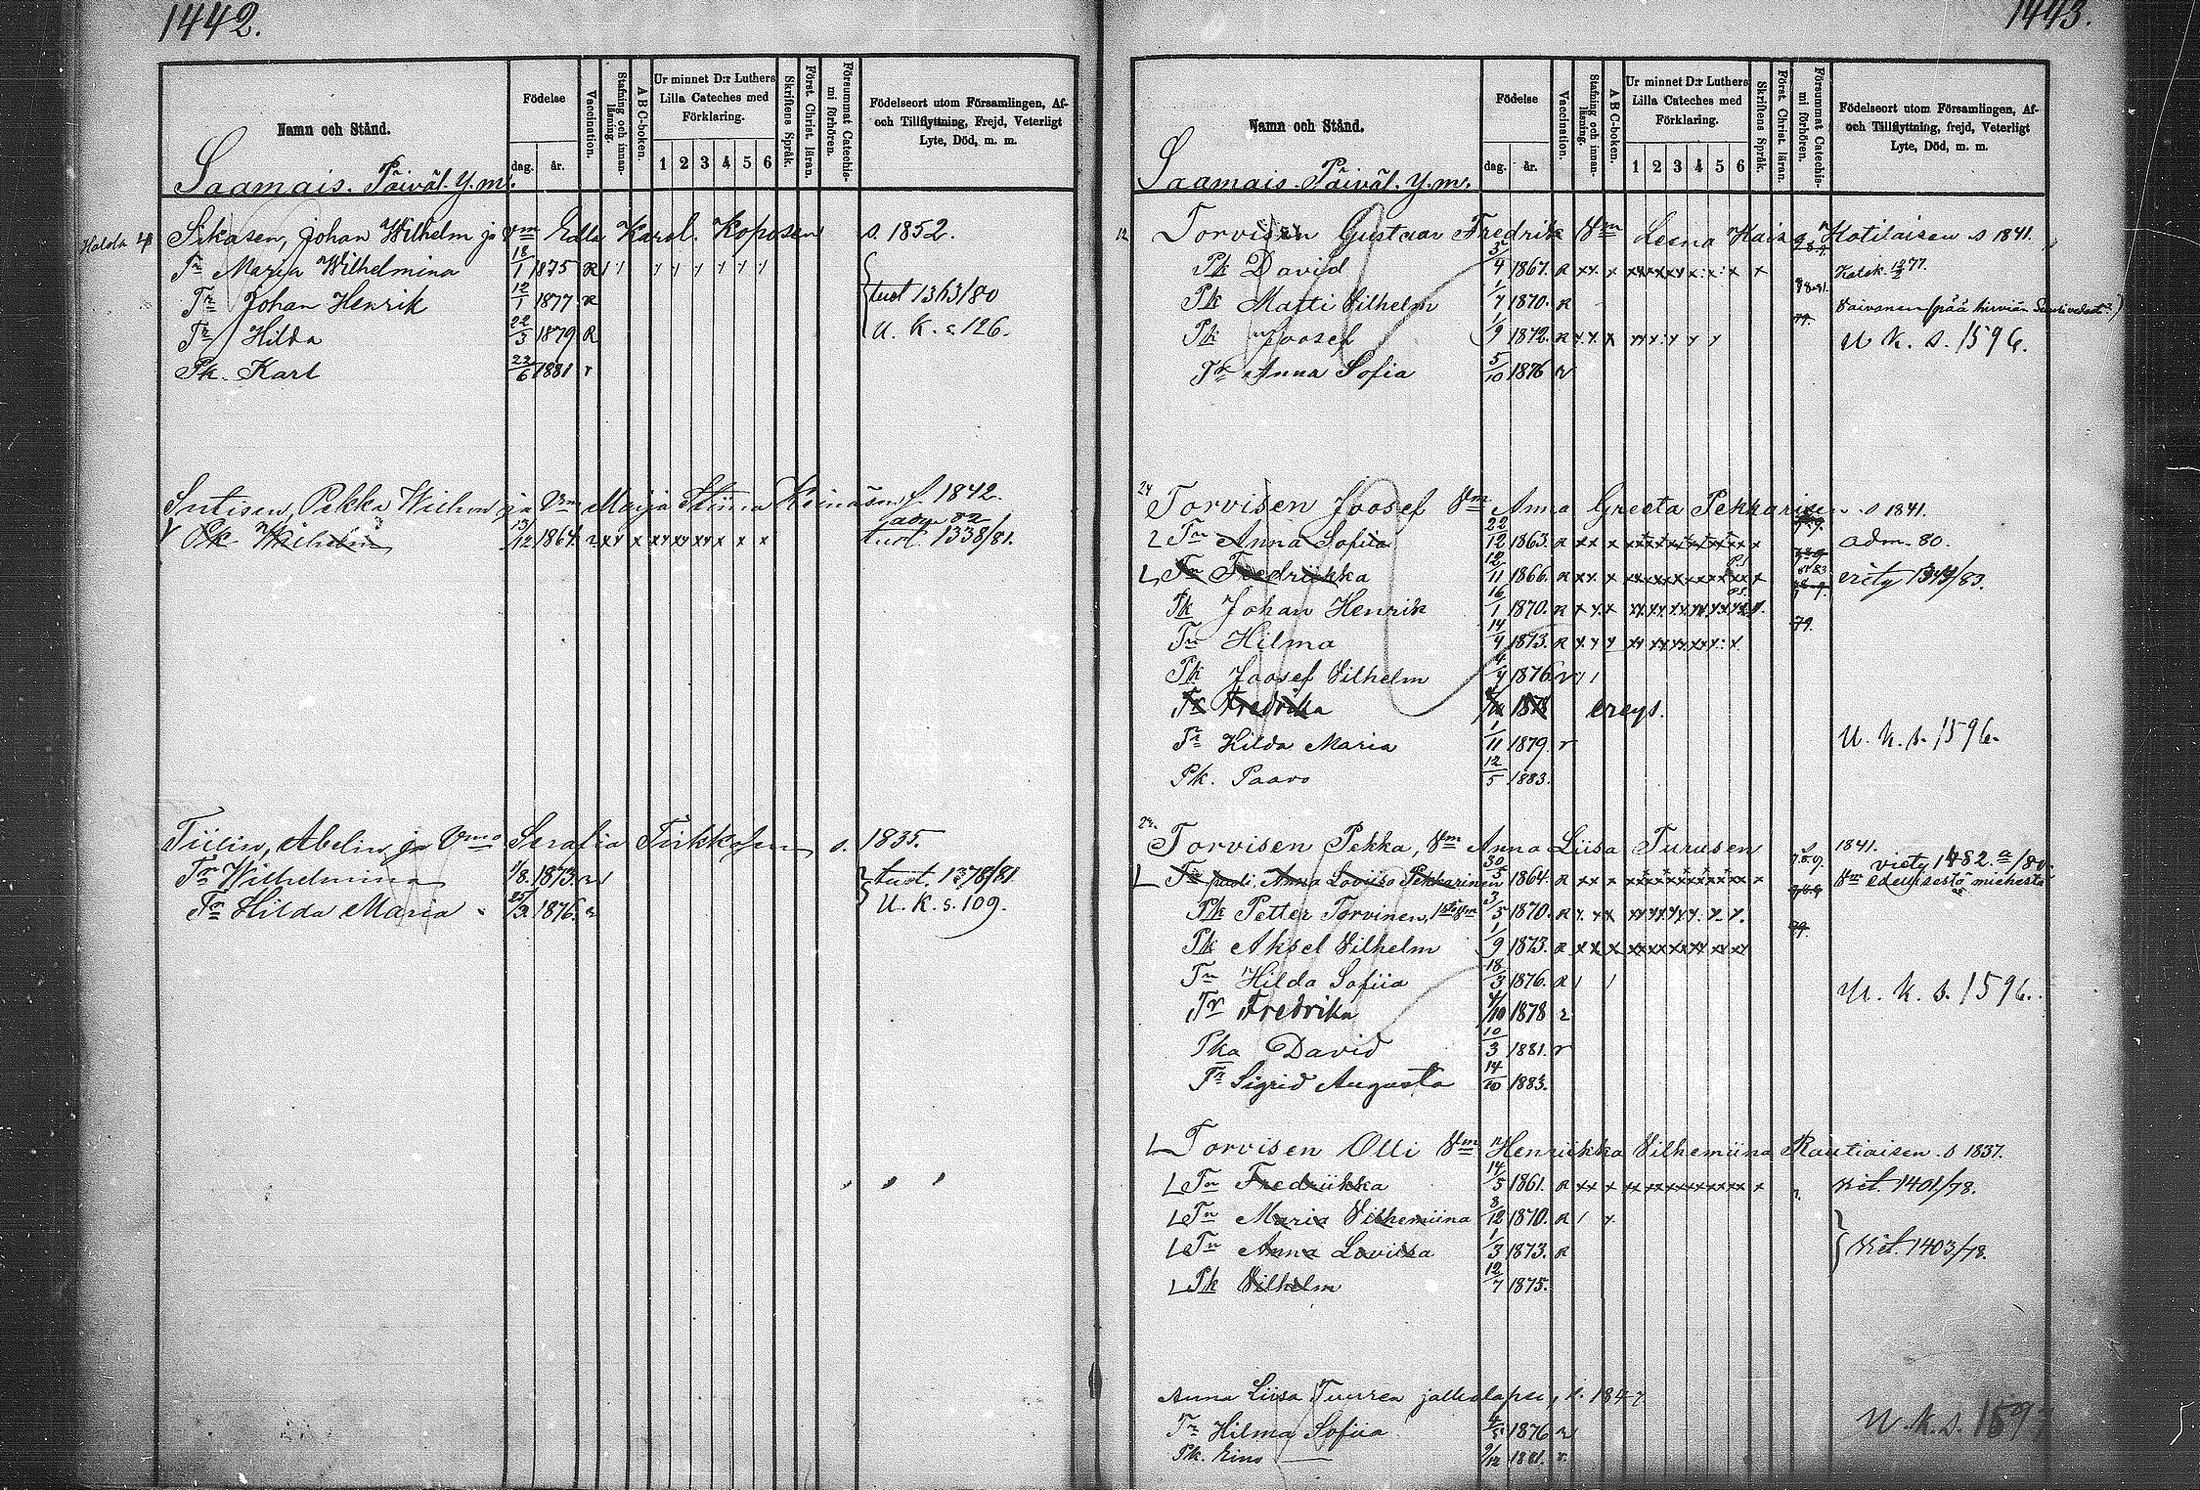 1442.
Namn och Stånd.
Födelse
dag. år.
Vaccination.
Stafning och innanläsning.
A B C-boken.
Ur minnet D:r Luthers Lilla Cateches med Förklaring.
1 2 3 4 5 6
Skriftens Språk.
Först. Christ. läran.
Försummat Catechismi förhören.
Födelseort utom Församlingen, Af- och Tillflyttning, Frejd, Veterligt Lyte, Död, m. m.
Saamais. Päiväl. y.m.
Sikasen, Johan Wilhelm ja Vm Edla Karol. Koposen s. 1852.
Tr Maria Wilhelmina 18/1 1875 R
Tr Johan Henrik 12/1 1877 R tuot 1363/80
Tr Hilda 22/3 1879 R U. K. s. 126.
Pk. Karl 22/6 1881 r
Sutisen, Pekka Wichon ja Vm Maija Stiina Keinäsen s. 1842.
Pk. Wilhelm 13/12 1864 tuot. 1338/81.
Tiilin, Abelin ja Vmo Serafia Tirkkosen s. 1835.
Tr Wilhelmina 1/8 1873. tuot. 1378/81
Tr Hilda Maria 1876. U. K. s. 109.
1443.
Namn och Stånd.
Födelse
dag. år.
Vaccination.
Stafning och innanläsning.
A B C-boken.
Ur minnet D:r Luthers Lilla Cateches med Förklaring.
1 2 3 4 5 6
Skriftens Språk.
Först. Christ. läran.
Försummat Catechismi förhören.
Födelseort utom Församlingen, Af- och Tillflyttning, frejd, Veterligt Lyte, Död, m. m.
Saamais. Päiväl. y.m.
Torvisen Gustaav Fredrik Vm Leena Kaisa Kotilaisen s 1841.
Pk David 5/4 1867. R
Pk Matti Vilhelm 1/7 1870. R
Pk Joosef 1/9 1872. R U. K. s. 1596.
Tr Anna Sofia 5/10 1876 r
24 Torvisen Joosef Vm Anna Greeta Pekkarisen s 1841.
Tr Anna Sofiia 22/12 1863. R adm. 80.
Tr Fredriikka 12/11 1866. R erity 1344/83.
Pk Johan Henrik 16/1 1870. R
Tr Hilma 14/4 1873. R 79.
Pk Joosef Vilhelm 4/4 1876 r
Tr Fredrika 1878 ereys.
Tr Hilda Maria 1/11 1879 r U. K. s. 1596.
Pk. Paavo 12/5 1883.
Torvisen Pekka, Vm Anna Liisa Turusen s 1841.
Tr puoli, Anna Loviisa Pekkarinen 30/5 1864. R viety 1482 a/80. Vm edellisestä miehestä
Pk Petter Torvinen, 3/5 1870. R
Pk Aksel Vilhelm 1/9 1873. R
Tr Hilda Sofiia 18/3 1876. R U. K. s. 1596.
Tr Fredrika 4/10 1878 r
Pka David 10/3 1881. r
Tr Sigrid Augusta 14/10 1883.
Torvisen Olli Vm Henriikka Vilhemiina Rautiaisen s 1837.
Tr Fredriikka 14/5 1861. R viet. 1401/78.
Tr Maria Vilhemiina 8/12 1870. R
Tr Anna Loviisa 1/3 1873. R viet. 1403/78.
Pk Vilhelm 12/7 1875.
Anna Liisa Tuurea s. 1847
Tr Hilma Sofiia 1876 r
Pk. Eino 9/12 1881 r.
U. K. s.